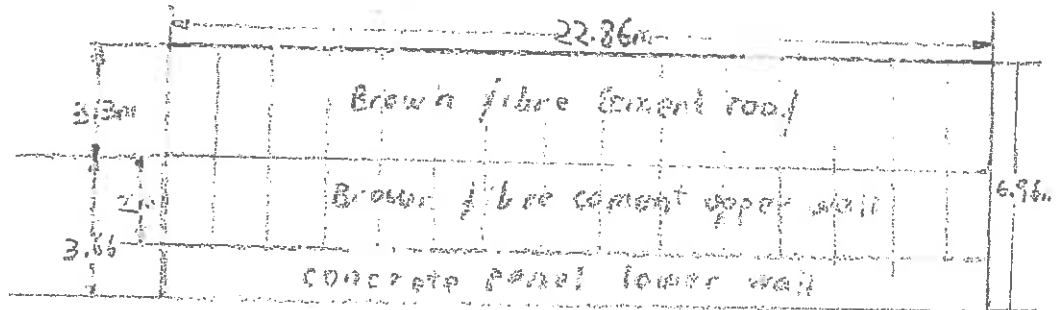 22.86m
Brown fibre cement roof
3.3m
Brown fibre cement upper wall
6.96m
3.66
concrete panel lower wall